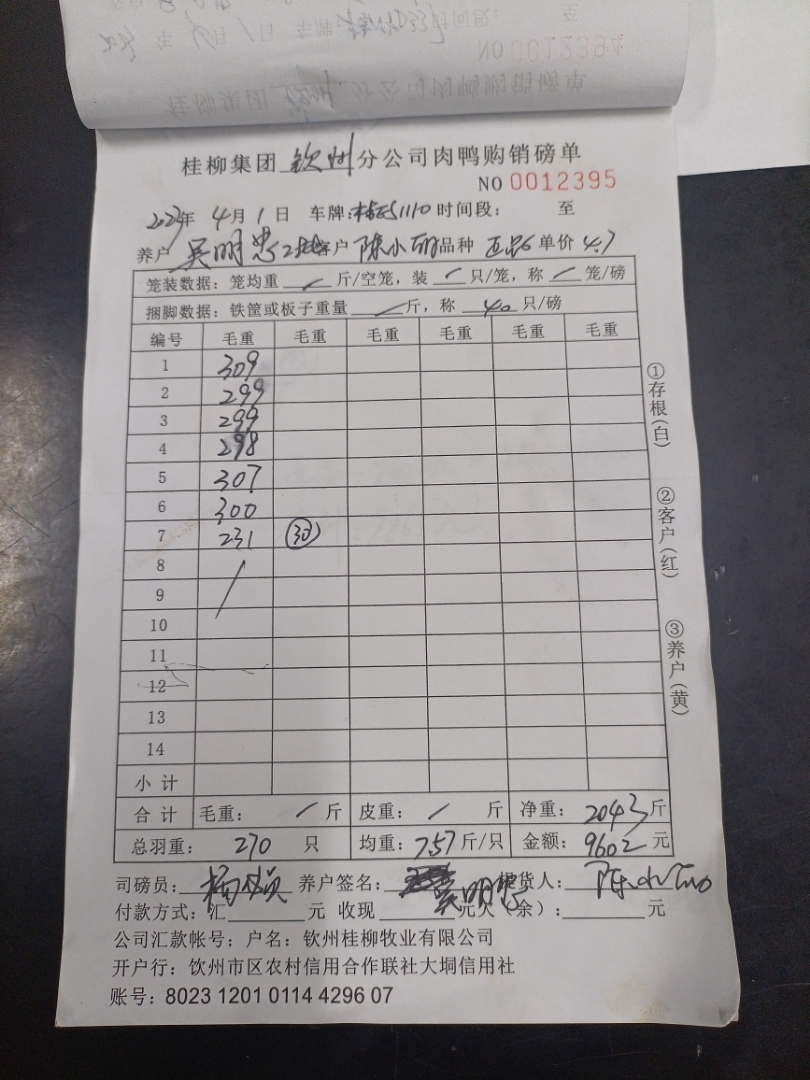 NO 0012394
桂柳集团 钦州 分公司肉鸭购销磅单
桂柳集团 钦州 分公司肉鸭购销磅单
NO 0012395
年 4 月 1 日 车牌: 1110 时间段: 至
养户 吴明忠 客户 陈小 品种 正品 单价 4.7
笼装数据: 笼均重 / 斤/空笼, 装 / 只/笼, 称 / 笼/磅
捆脚数据: 铁筐或板子重量 / 斤, 称 40 只/磅
编号 毛重 毛重 毛重 毛重 毛重 毛重
1 309
2 299
3 299
4 298
5 307
6 300
7 231 30
8
9
10
11
12
13
14
小计
合计 毛重: / 斤 皮重: / 斤 净重: 2043 斤
总羽重: 270 只 均重: 757 斤/只 金额: 9602 元
司磅员: 杨 养户签名: 吴明忠 提货人: 陈
付款方式: 汇 元 收现 元欠(余): 元
公司汇款帐号: 户名: 钦州桂柳牧业有限公司
开户行: 钦州市区农村信用合作联社大垌信用社
账号: 8023 1201 0114 4296 07
①存根(白)
②客户(红)
③养户(黄)